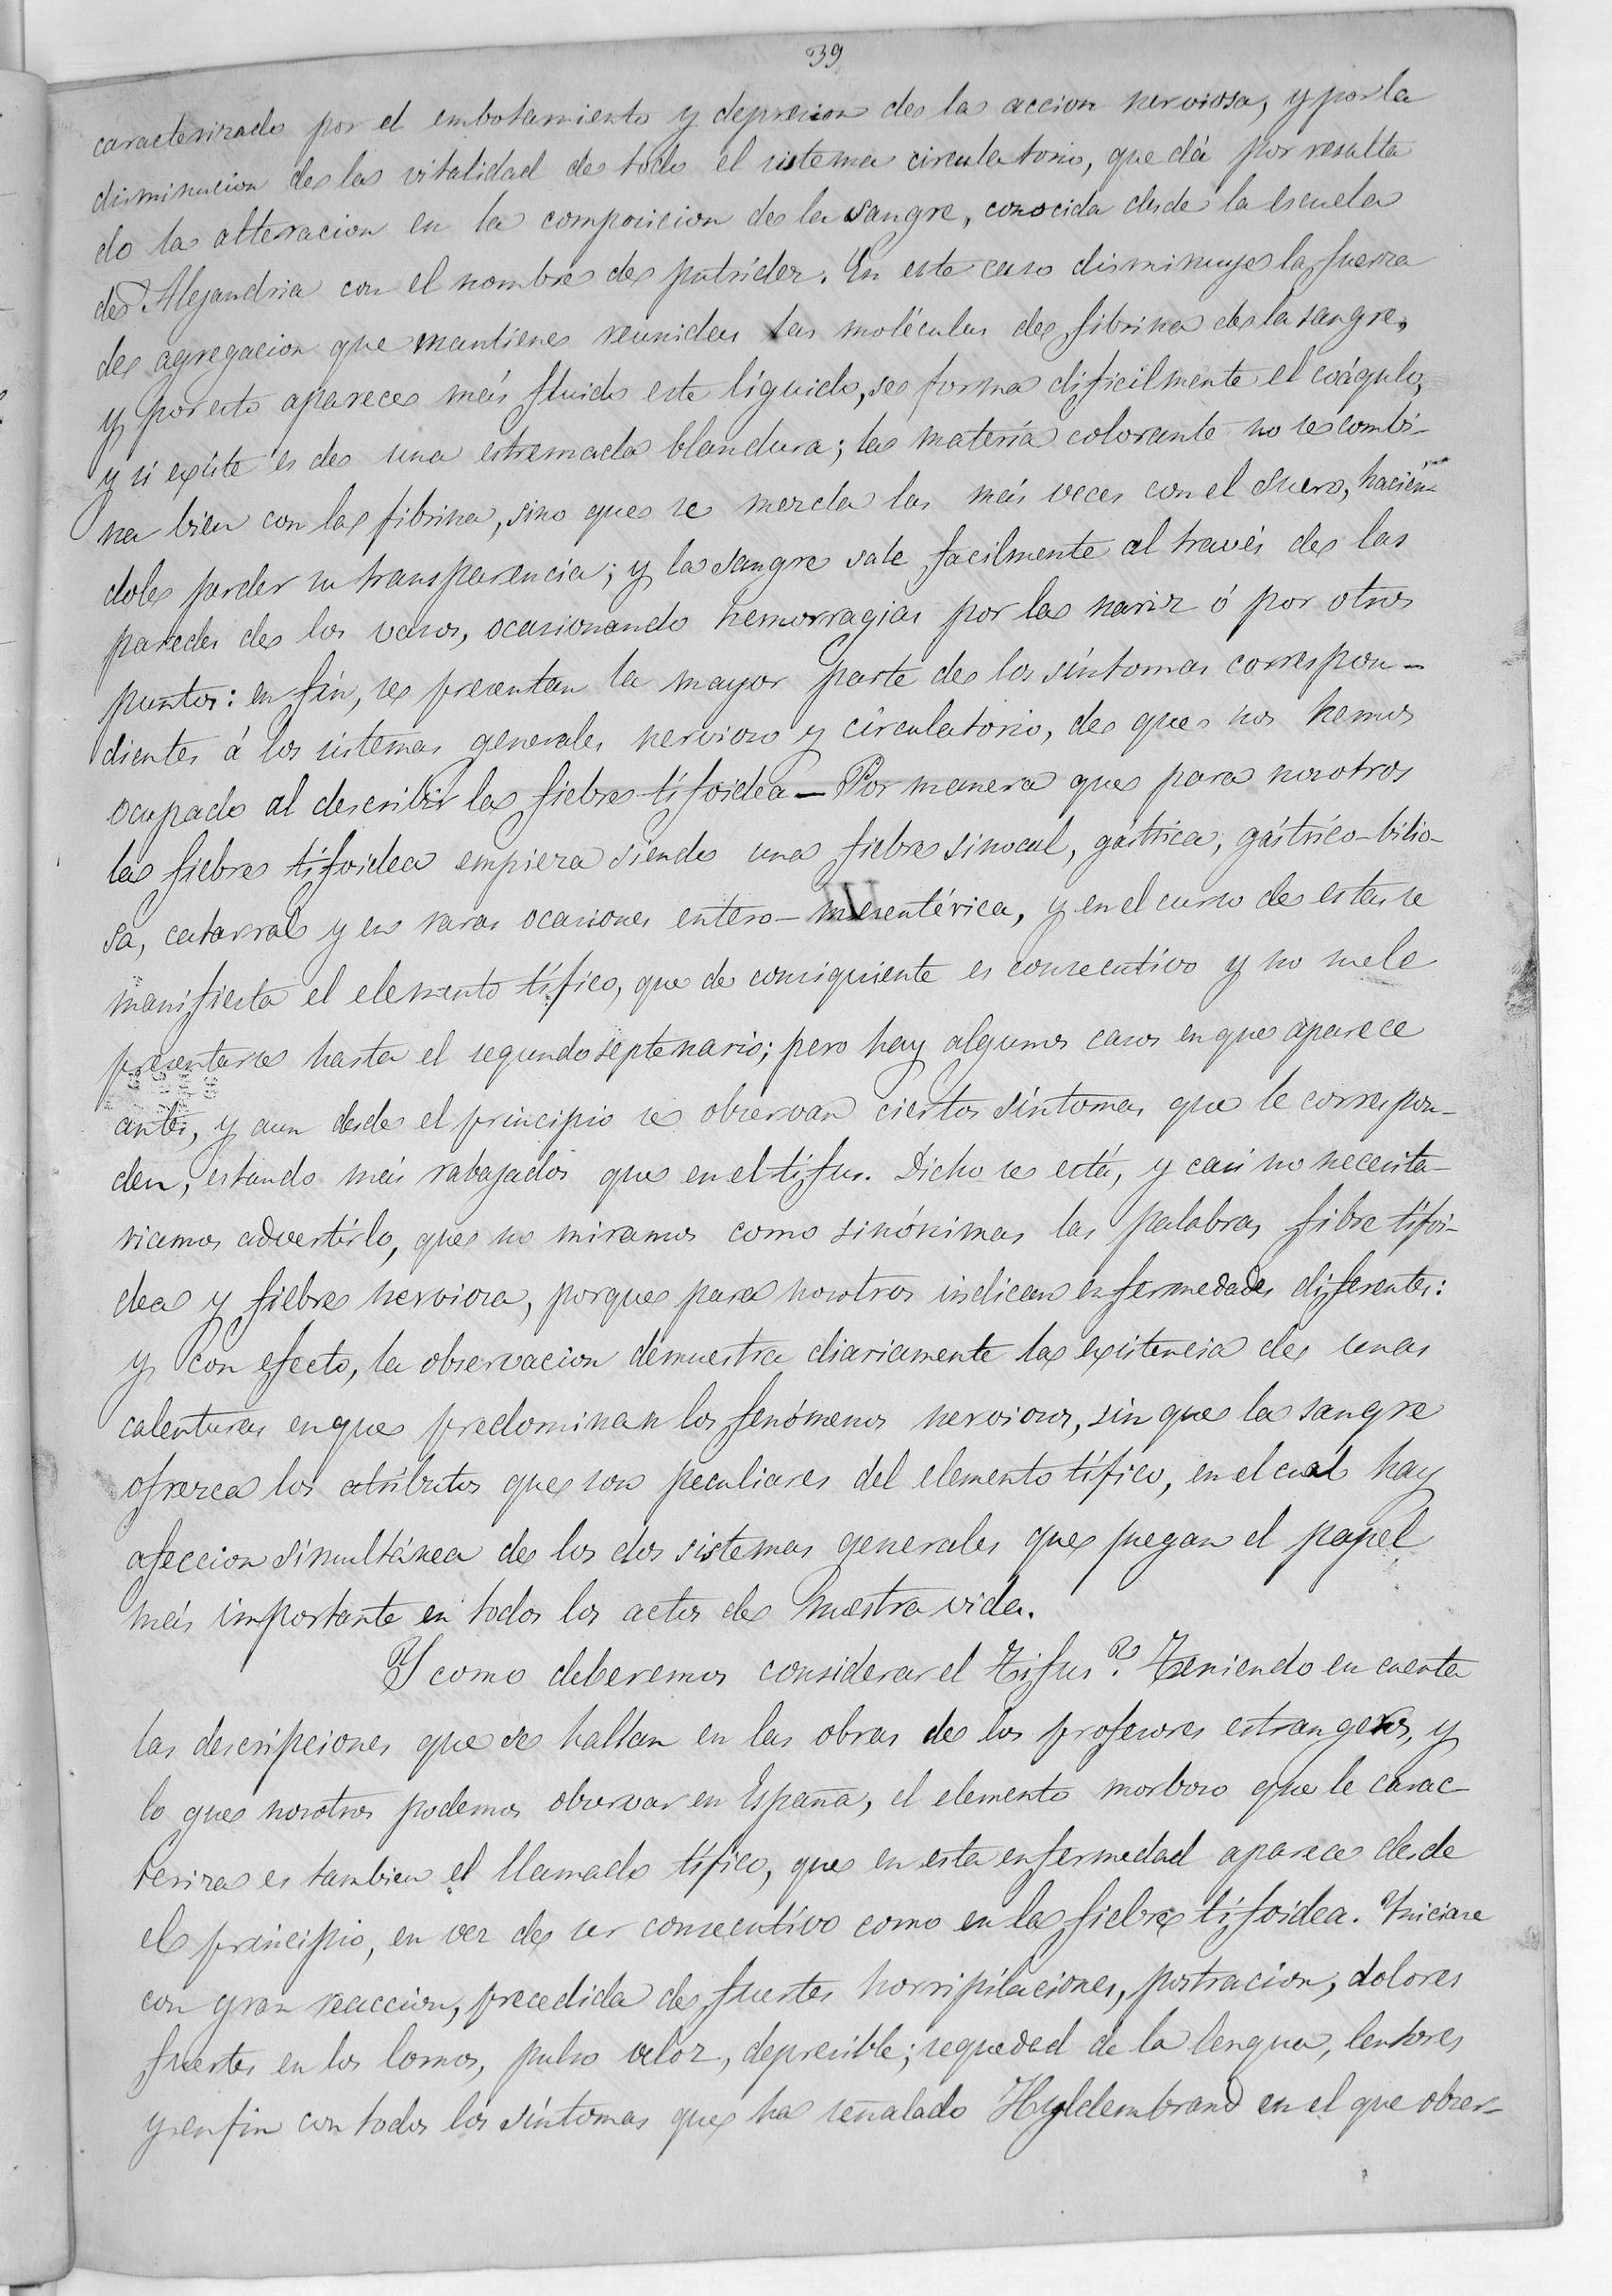 39
caracterizado por el embotamiento y depresion de la accion nerviosa, y por la
disminucion de la vitalidad de todo el sistema circulatorio, que dá por resulta
do la alteracion en la composicion de la sangre, conocida desde la escuela
de Alejandria con el nombre de putridez. En este caso disminuye la fuerza
de agregacion que mantiene reunidas las moléculas de fibrina de la sangre,
y por esto aparece más fluido este líquido, se forma dificilmente el coágulo,
y si existe es de una estremada blandura; la materia colorante no se combi-
na bien con la fibrina, sino que se mezcla las más veces con el suero, hacién-
dole perder su transparencia; y la sangre sale facilmente al través de las
paredes de los vasos, ocasionando hemorragias por la nariz ó por otros
puntos: en fin, se presentan la mayor parte de los síntomas correspon-
dientes á los sistemas generales nervioso y circulatorio, de que nos hemos
ocupado al describir la fiebre tifoidea — Por manera que para nosotros
la fiebre tifoidea empieza siendo una fiebre sinocal, gástrica, gástrico-bilio-
sa, catarral y en raras ocasiones entero-mesentérica, y en el curso de estas se
manifiesta el elemento tífico, que de consiguiente es consecutivo y no suele
presentarse hasta el segundo septenario; pero hay algunos casos en que aparece
antes, y aun desde el principio se observan ciertos síntomas que le correspon-
den, estando más rabajados que en el tifus. Dicho se está, y casi no necesita-
riamos advertirlo, que no miramos como sinónimas las palabras fibre tifoi-
dea y fiebre nerviosa, porque para nosotros indican enfermedades diferentes:
y con efecto, la observacion demuestra diariamente la existencia de unas
calenturas en que predominan los fenómenos nerviosos, sin que la sangre
ofrezca los atributos que son peculiares del elemento tífico, en el cual hay
afeccion simultánea de los dos sistemas generales que juegan el papel
más importante en todos los actos de nuestra vida.
Y como deberemos considerar el Tifus? Teniendo en cuenta
las descripciones que se hallan en las obras de los profesores estrangeros, y
lo que nosotros podemos observar en España, el elemento morboso que le carac-
teriza es tambien el llamado tífico, que en esta enfermedad aparece desde
el principio, en vez de ser consecutivo como en la fiebre tifoidea. Iniciase
con gran reaccion, precedida de fuertes horripilaciones, postracion, dolores
fuertes en los lomos, pulso veloz, depresible; sequedad de la lengua, lentores
y en fin con todos los síntomas que ha señalado Hyldembrand en el que obser-